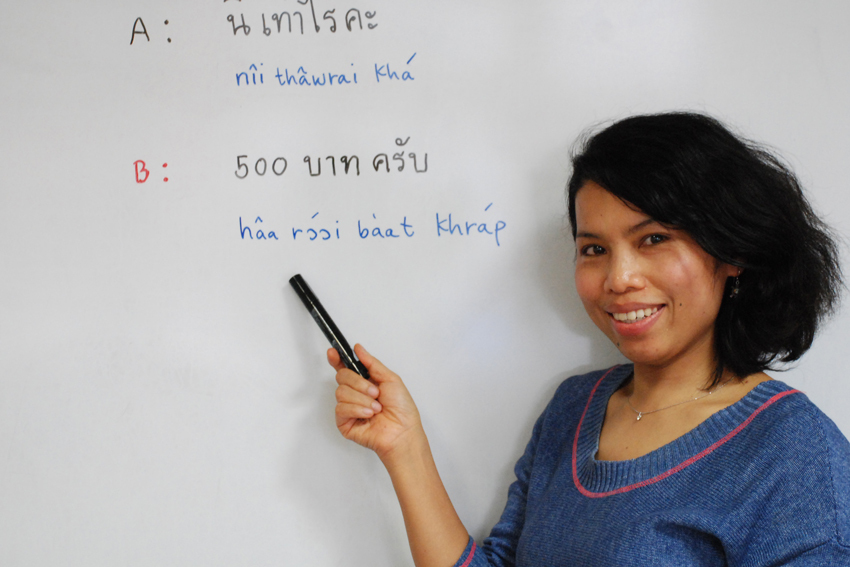 A: นี่ เท่าไร คะ
nîi thâwrai khá
B: 500 บาท ครับ
hâa rɔ́ɔi bàat khráp